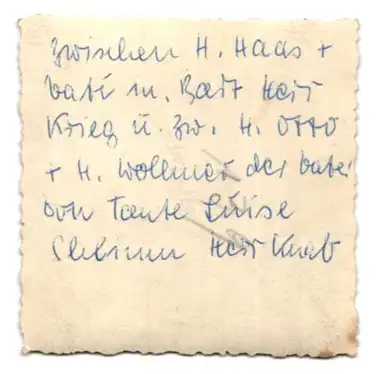 zwischen H. Haas +
Vati m. Bart Herr
Krieg u. zw. H. Otto
+ H. Wollmer der Vater
von Tante Luise
Herr Knab